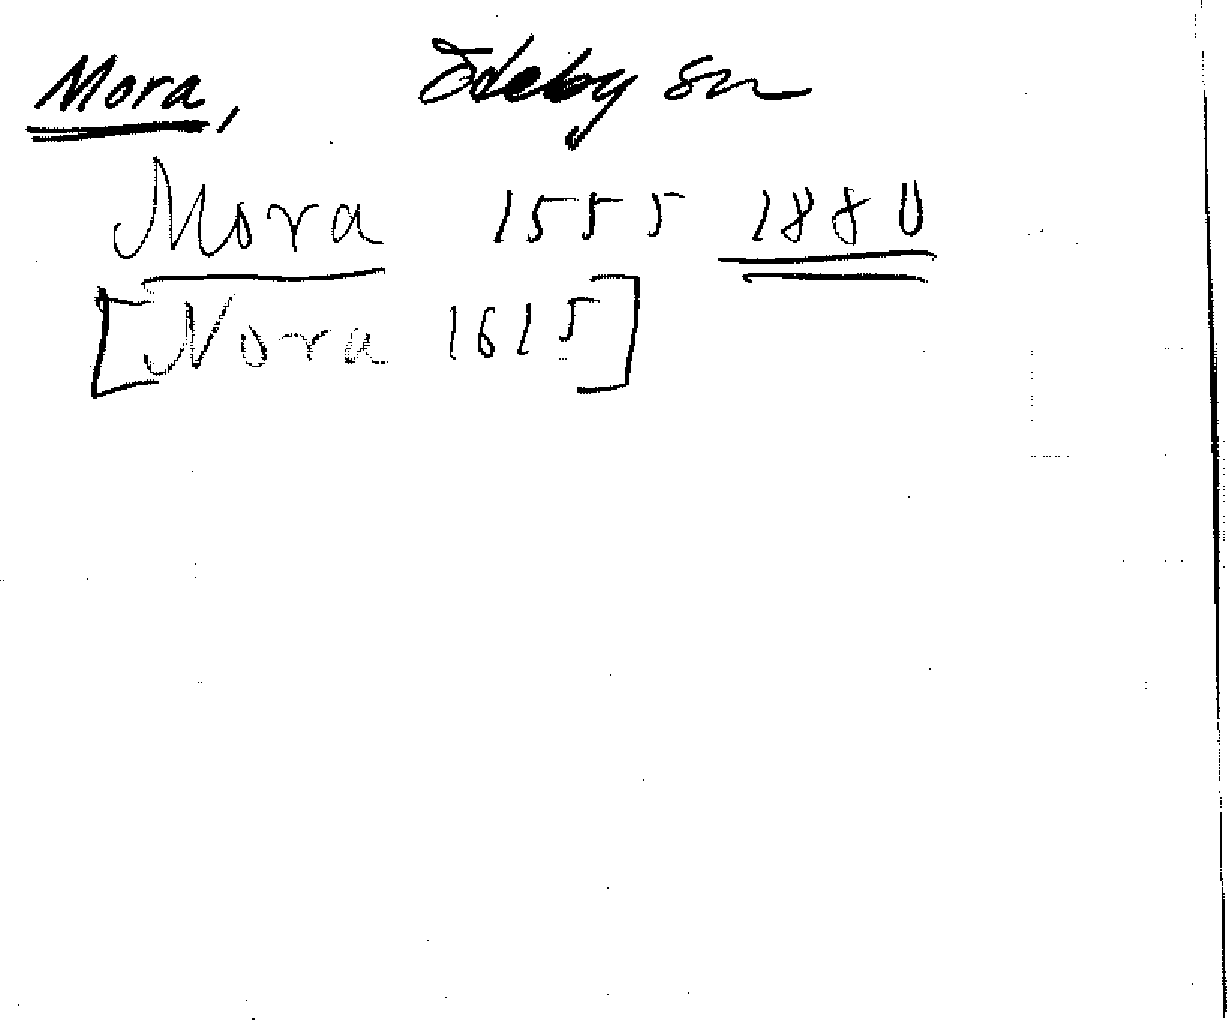 Mora, Ödeby sn
Mora 1555 1880
[Nora 1615]